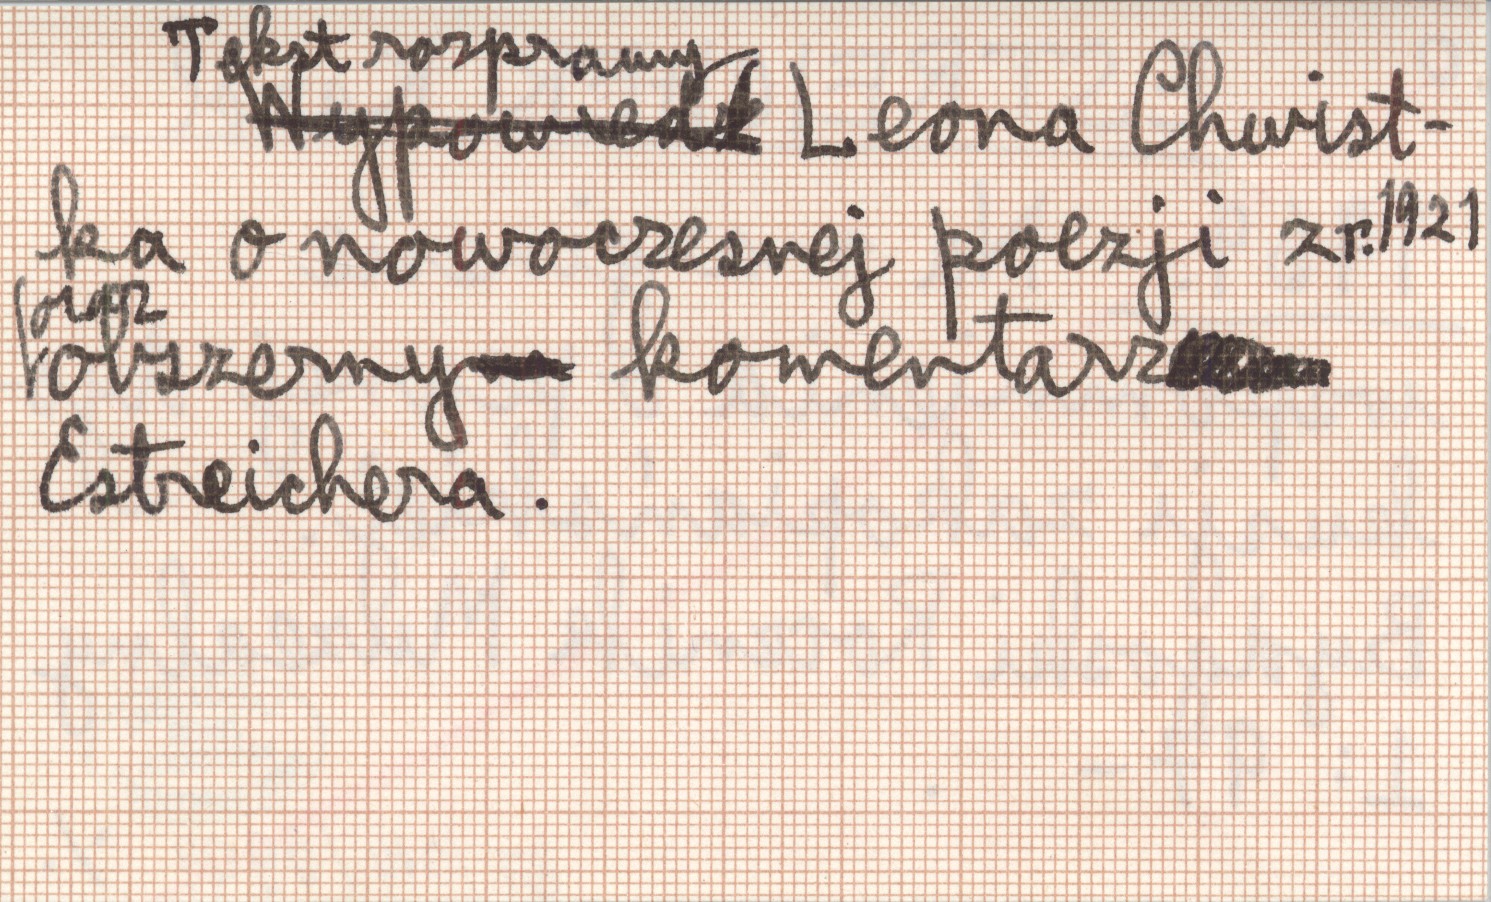 Tekst rozprawy
Wypowiedź Leona Chwist-
ka o nowoczesnej poezji z r. 1921
oraz
obszerny komentarz
Estreichera.